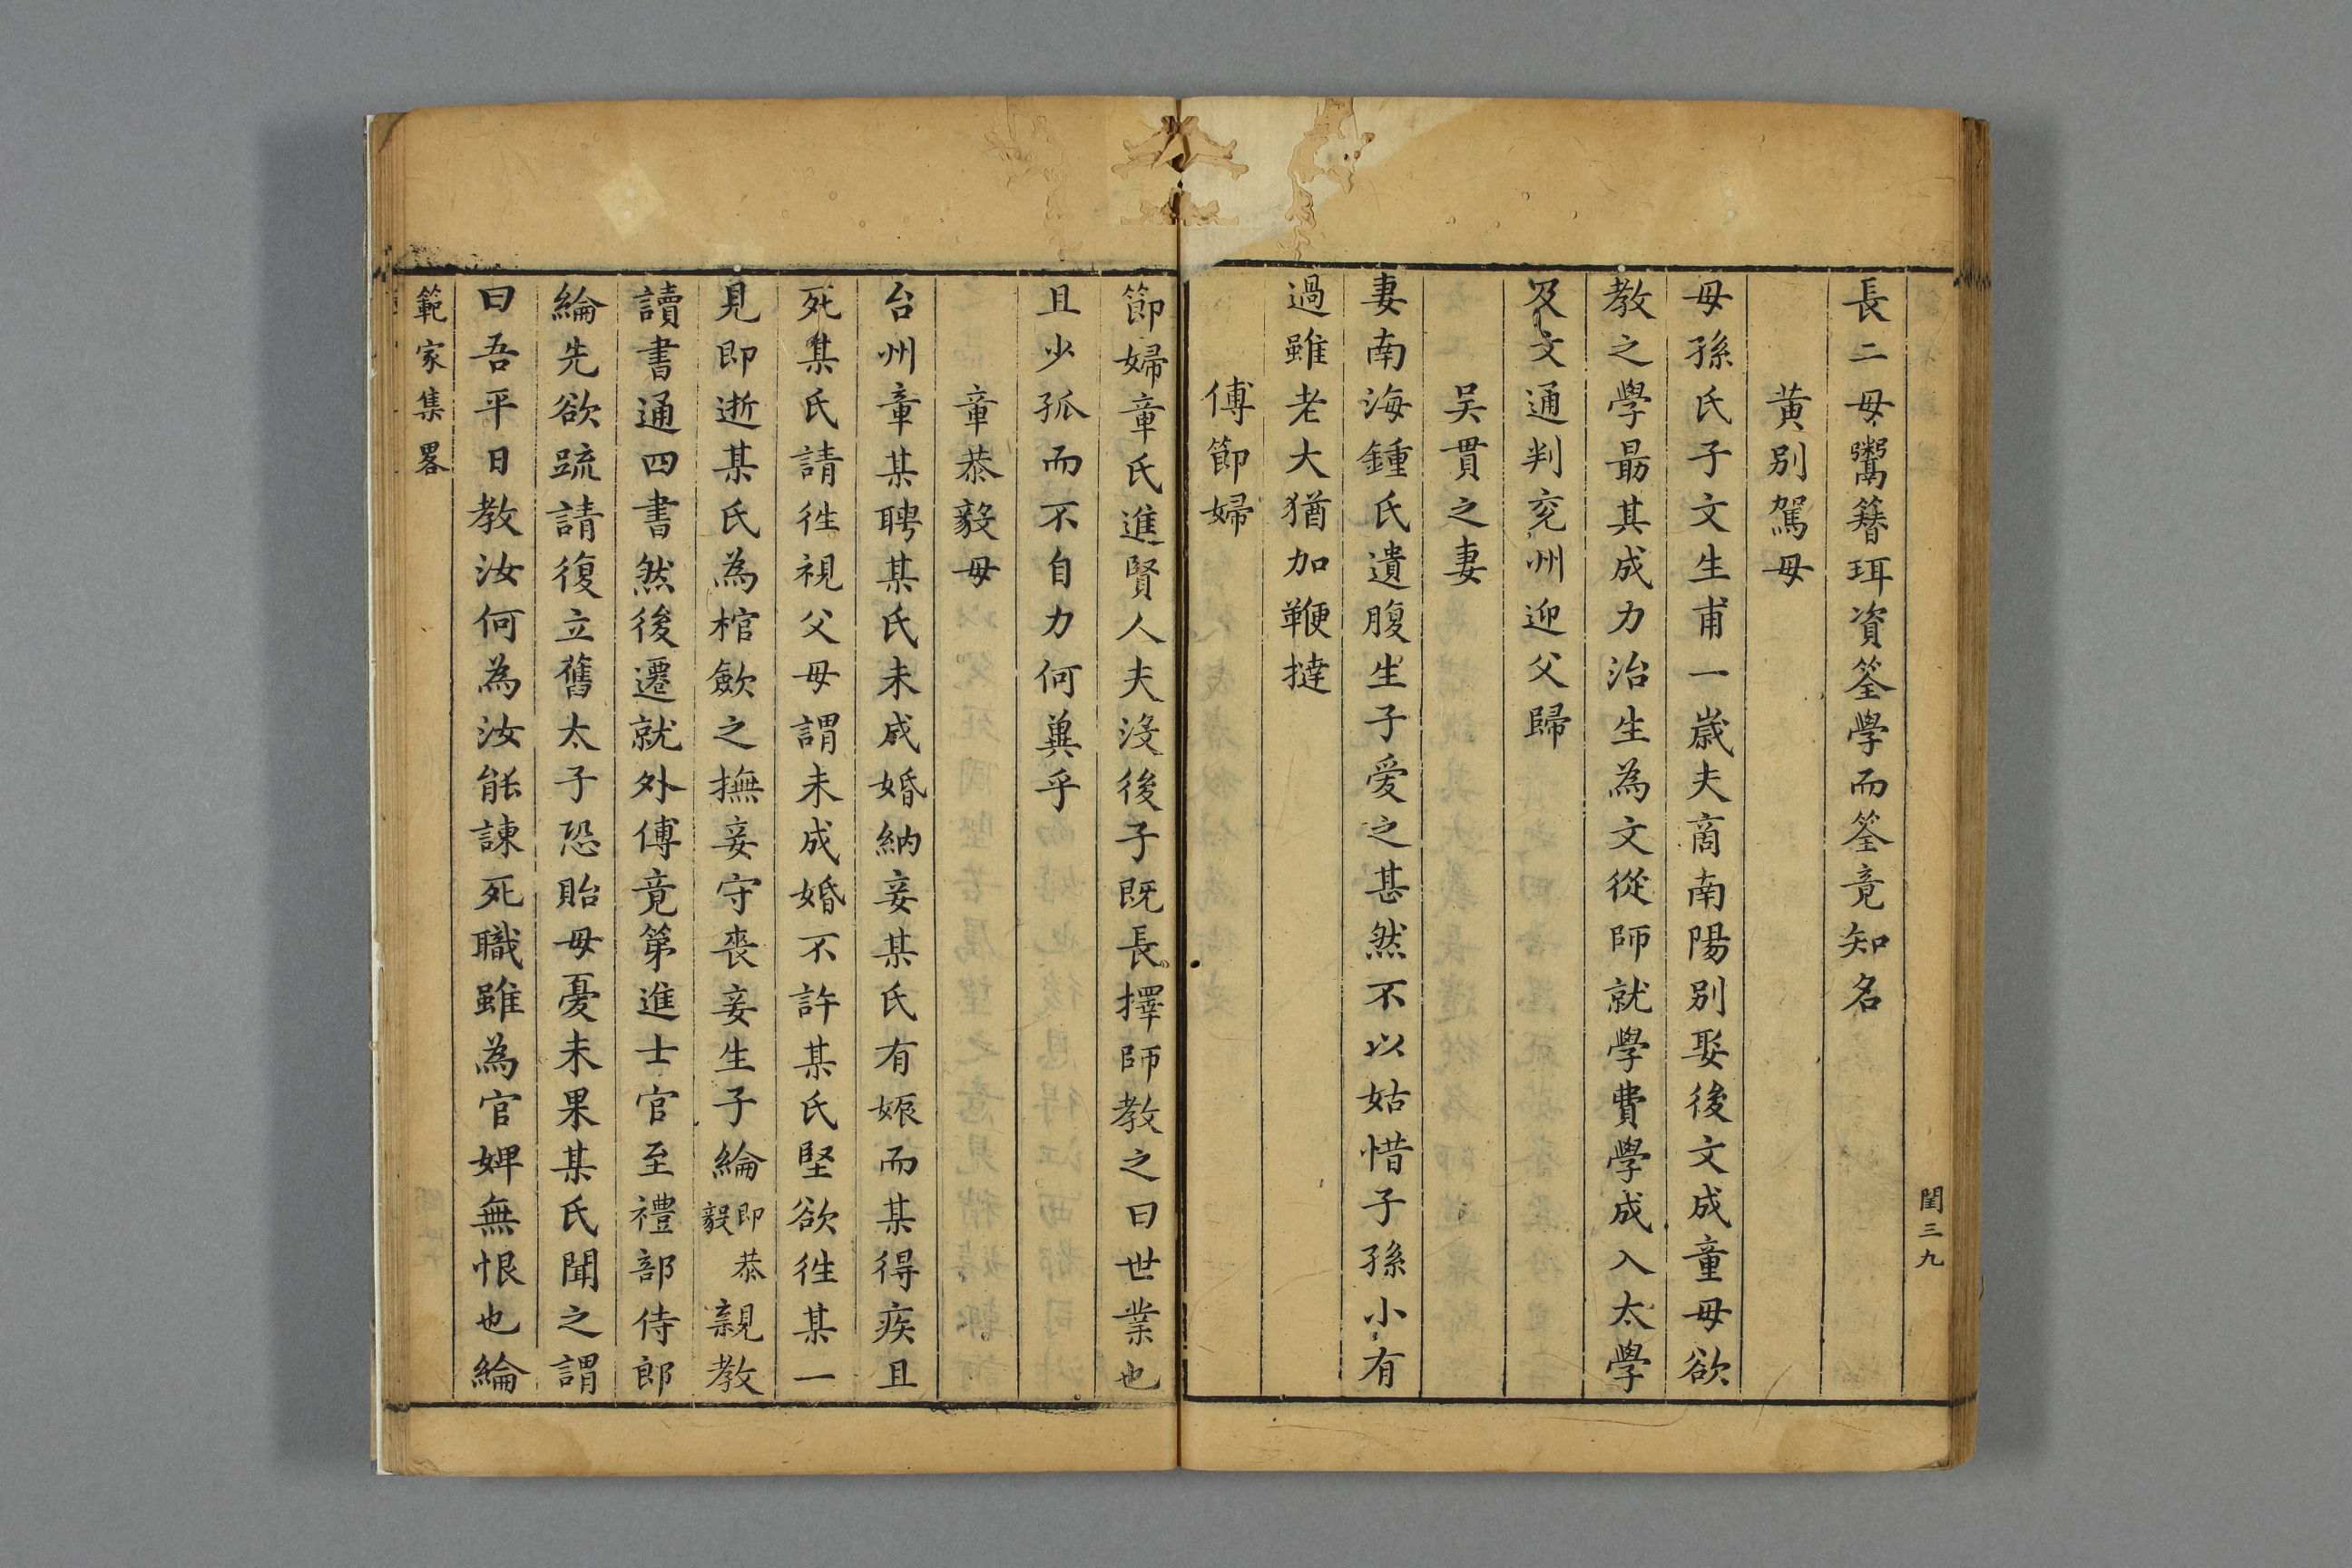 閨三九
長二母鬻簪珥資筌學而筌竟知名
黄別駕母
母孫氏子文生甫一嵗夫商南陽別娶後文成童母欲
教之學最其成力治生為文從師就學費學成入太學
及文通判兖州迎父歸
吴貫之妻
妻南海鍾氏遺腹生子愛之甚然不以姑惜子孫小有
過雖老大猶加鞭撻
傅節婦
節婦章氏進賢人夫沒後子既長擇師教之曰世業也
且少孤而不自力何兾乎
章恭毅母
台州章某聘某氏未成婚納妾某氏有娠而某得疾且
死某氏請徃視父母謂未成婚不許某氏堅欲徃某一
見即逝某氏為棺歛之撫妾守喪妾生子綸即恭毅親教
讀書通四書然後遷就外傅竟第進士官至禮部侍郎
綸先欲疏請復立舊太子恐貽母憂未果某氏聞之謂
曰吾平日教汝何為汝能諫死職雖為官婢無恨也綸
範家集畧